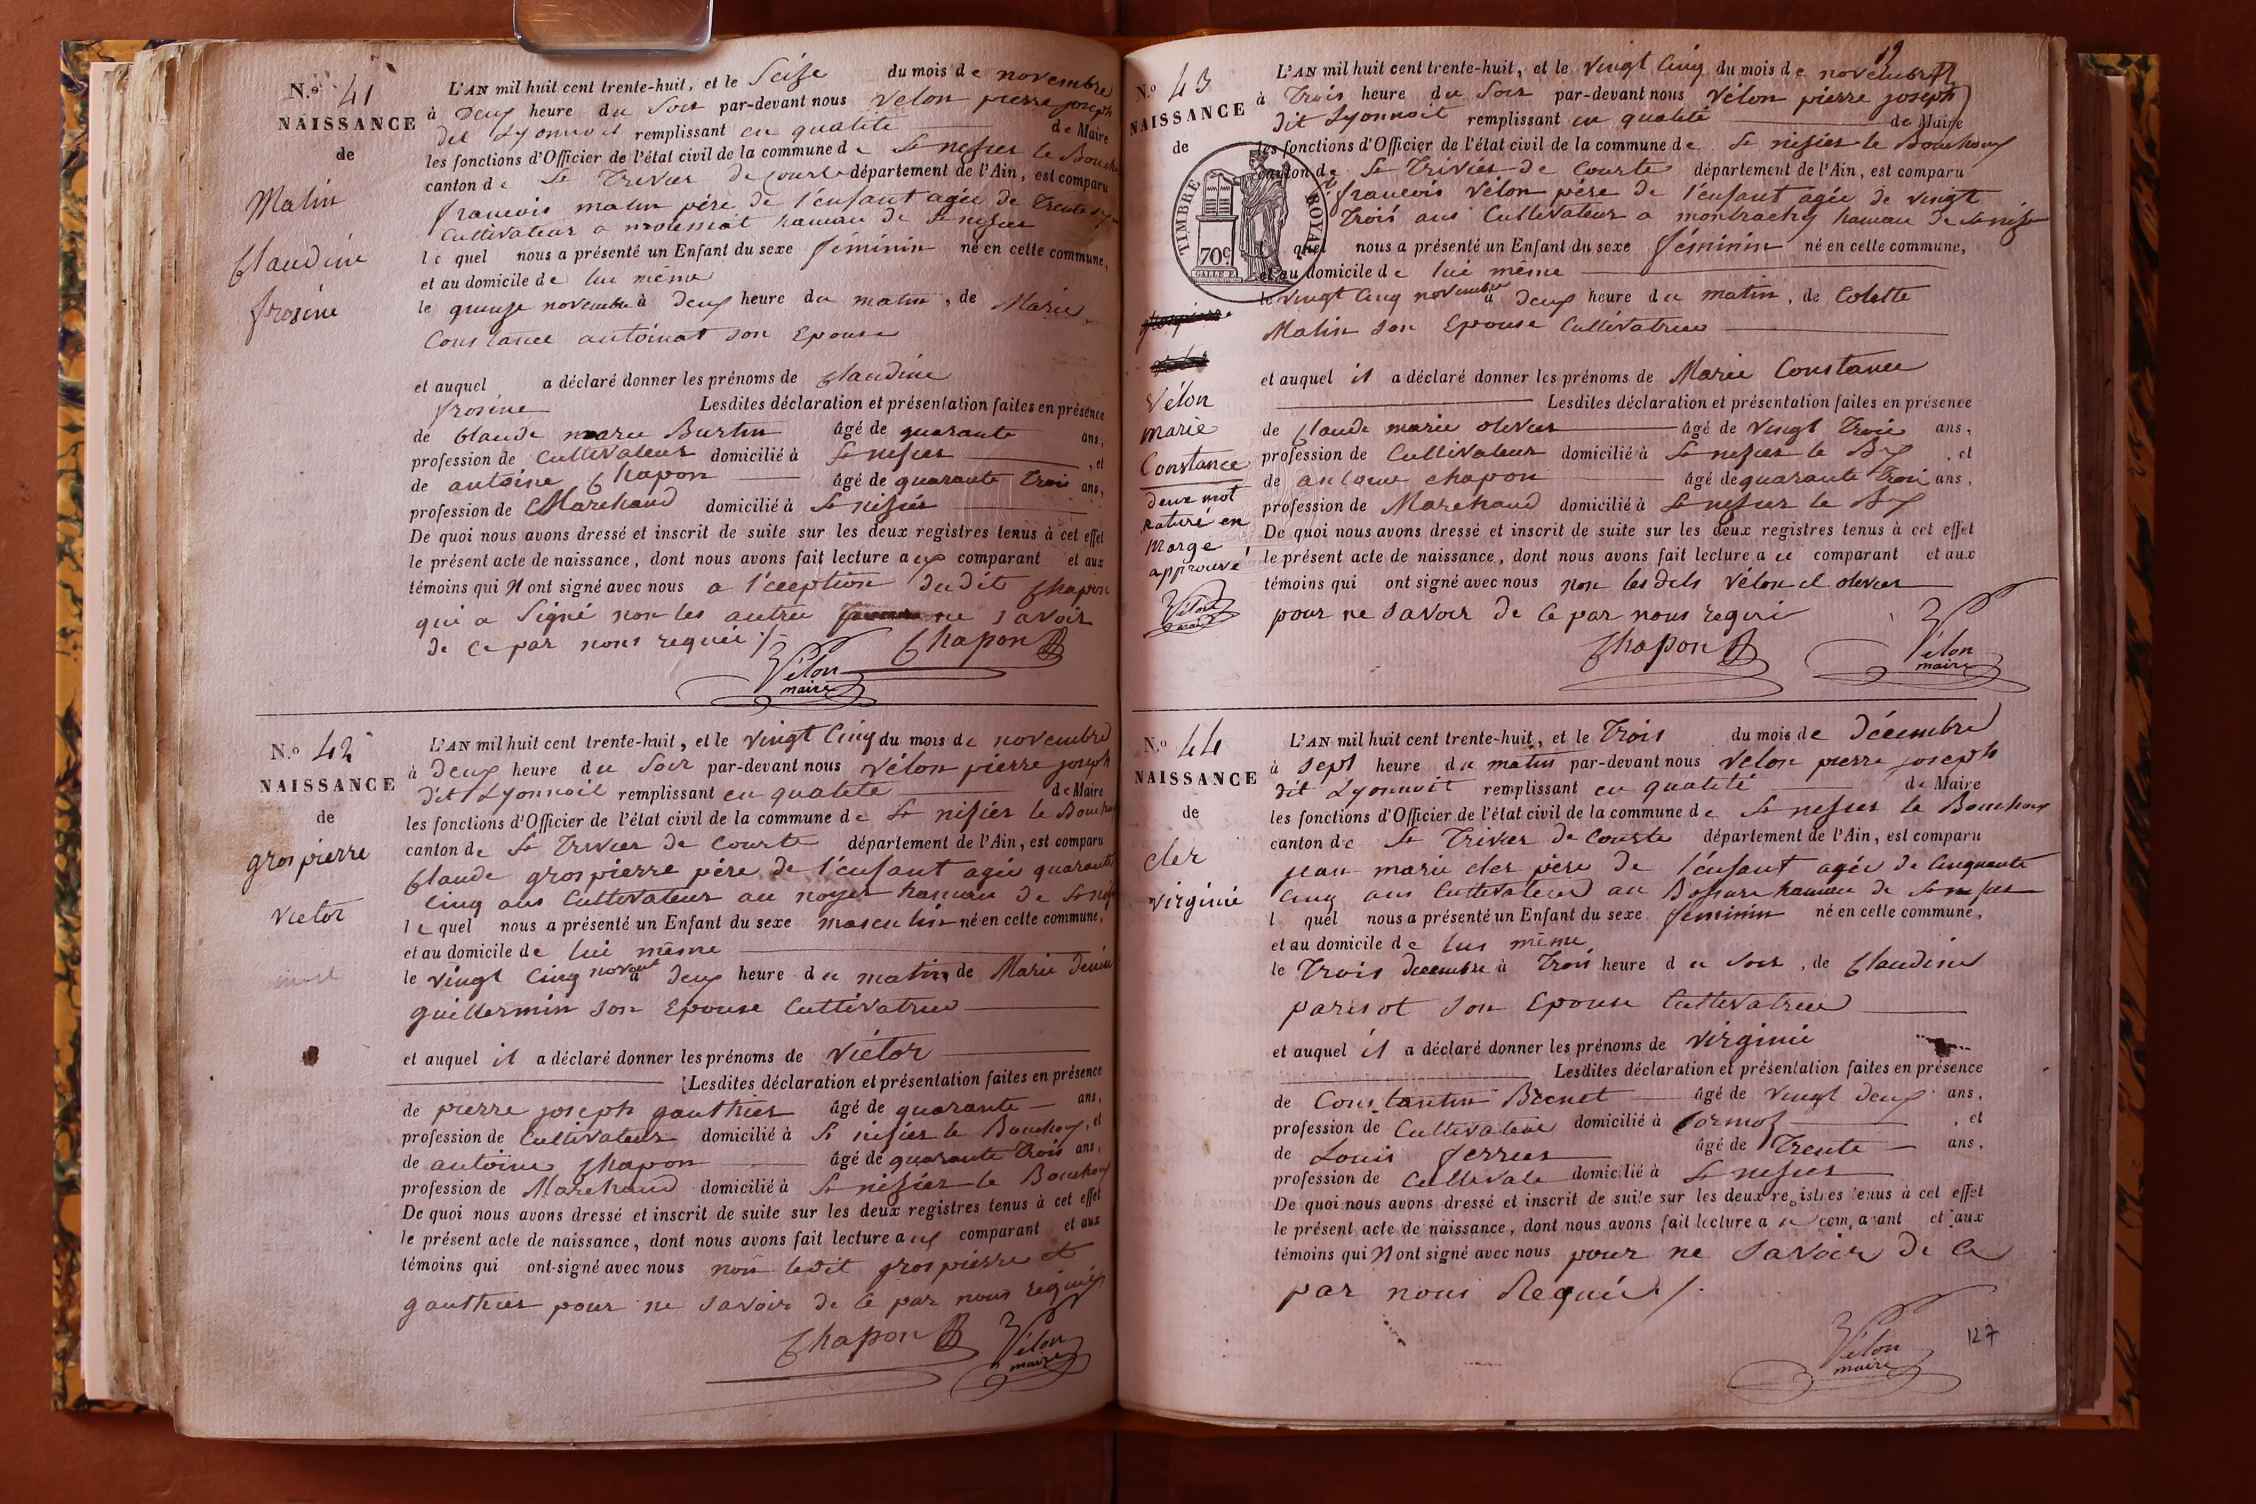 N.º 41
NAISSANCE
de
Matin
Claudine
frosine
L'AN mil huit cent trente-huit, et le Seize du mois de novembre
à Deux heure du Soir par-devant nous Vélon pierre joseph
dit Lyonnoit remplissant en qualité de Maire
les fonctions d'Officier de l'état civil de la commune de St nisier le Bouchoux
canton de St Trivier de Courte département de l'Ain, est comparu
francois matin pére de l'enfant agée de Trente
Cultivateur a hameau de St nisier
le quel nous a présenté un Enfant du sexe féminin né en cette commune,
et au domicile de lui même
le quinze novembre à deux heure du matin, de Marie
Constance antoinat son Epouse
et auquel a déclaré donner les prénoms de Claudine
frosine Lesdites déclaration et présentation faites en présence
de Claude marie Burtin âgé de quarante ans,
profession de Cultivateur domicilié à St nisier , et
de antoine Chapon âgé de quarante Trois ans,
profession de Marchand domicilié à St nisier
De quoi nous avons dressé et inscrit de suite sur les deux registres tenus à cet effet
le présent acte de naissance, dont nous avons fait lecture aux comparant et aux
témoins qui N ont signé avec nous a l'éception dudit Chapon
qui a Signé non les autre ne savoir
de Ce par nous requis ./.
Chapon
Vélon
maire
N.º 42
NAISSANCE
de
grospierre
victor
L'AN mil huit cent trente-huit, et le vingt Cinq du mois de novembre
à Deux heure du Soir par-devant nous Vélon pierre joseph
dit Lyonnoit remplissant en qualité de Maire
les fonctions d'Officier de l'état civil de la commune de St nisier le Bouchoux
canton de St Trivier de Courte département de l'Ain, est comparu
Claude grospierre pére de l'enfant agée quarante
Cinq ans Cultivateur au noyer hameau de St nisier
le quel nous a présenté un Enfant du sexe masculin né en cette commune,
et au domicile de lui même
le vingt Cinq à deux heure du matin, de Marie
guillermin son Epouse Cultivatrice
et auquel il a déclaré donner les prénoms de Victor
Lesdites déclaration et présentation faites en présence
de pierre joseph gauthier âgé de quarante ans,
profession de Cultivateur domicilié à St nisier le Bouchoux, et
de antoine Chapon âgé de quarante Trois ans,
profession de Marchand domicilié à St nisier le Bouchoux
De quoi nous avons dressé et inscrit de suite sur les deux registres tenus à cet effet
le présent acte de naissance, dont nous avons fait lecture aux comparant et aux
témoins qui ont signé avec nous non ledit grospierre et
gauthier pour ne savoir de Ce par nous requis
Chapon
Vélon
maire
19
N.º 43
NAISSANCE
de
TIMBRE ROYAL
70c.
Vélon
marie
Constance
deux mot
raturé en
marge
approuvé
Vélon
maire
L'AN mil huit cent trente-huit, et le vingt Cinq du mois de novembre
à Trois heure du Soir par-devant nous Vélon pierre joseph
dit Lyonnoit remplissant en qualité de Maire
les fonctions d'Officier de l'état civil de la commune de St nisier le Bouchoux
canton de St Trivier de Courte département de l'Ain, est comparu
francois Vélon pére de l'enfant agée de vingt
Trois ans Cultivateur a montrachy hameau de St nisier
l quel nous a présenté un Enfant du sexe féminin né en cette commune,
et au domicile de lui même
le vingt Cinq novembre à deux heure du matin, de Colette
Matin son Epouse Cultivatrice
et auquel il a déclaré donner les prénoms de Marie Constance
Lesdites déclaration et présentation faites en présence
de Claude marie olivier âgé de vingt Trois ans,
profession de Cultivateur domicilié à St nisier le Bx , et
de antoine Chapon âgé de quarante Trois ans,
profession de Marchand domicilié à St nisier le Bx
De quoi nous avons dressé et inscrit de suite sur les deux registres tenus à cet effet
le présent acte de naissance, dont nous avons fait lecture au comparant et aux
témoins qui ont signé avec nous non les dits Vélon et olivier
pour ne savoir de Ce par nous requis
Chapon
Vélon
maire
N.º 44
NAISSANCE
de
cler
virginie
L'AN mil huit cent trente-huit, et le Trois du mois de Décembre
à sept heure du matin par-devant nous Vélon pierre joseph
dit Lyonnoit remplissant en qualité de Maire
les fonctions d'Officier de l'état civil de la commune de St nisier le Bouchoux
canton de St Trivier de Courte département de l'Ain, est comparu
jean marie cler pére de l'enfant agée de Cinquante
Cinq ans Cultivateur au hameau de St nisier
l quel nous a présenté un Enfant du sexe féminin né en cette commune,
et au domicile de lui même
le Trois decembre à Trois heure du Soir, de Claudine
parisot son Epouse Cultivatrice
et auquel il a déclaré donner les prénoms de virginie
Lesdites déclaration et présentation faites en présence
de Constantin Brenet âgé de vingt deux ans,
profession de Cultivateur domicilié à Cormoz , et
de Louis âgé de Trente ans,
profession de Cultivate domicilié à St nisier
De quoi nous avons dressé et inscrit de suite sur les deux registres tenus à cet effet
le présent acte de naissance, dont nous avons fait lecture au comparant et aux
témoins qui N ont signé avec nous pour ne savoir de Ce
par nous Requis ./.
Vélon
maire
127